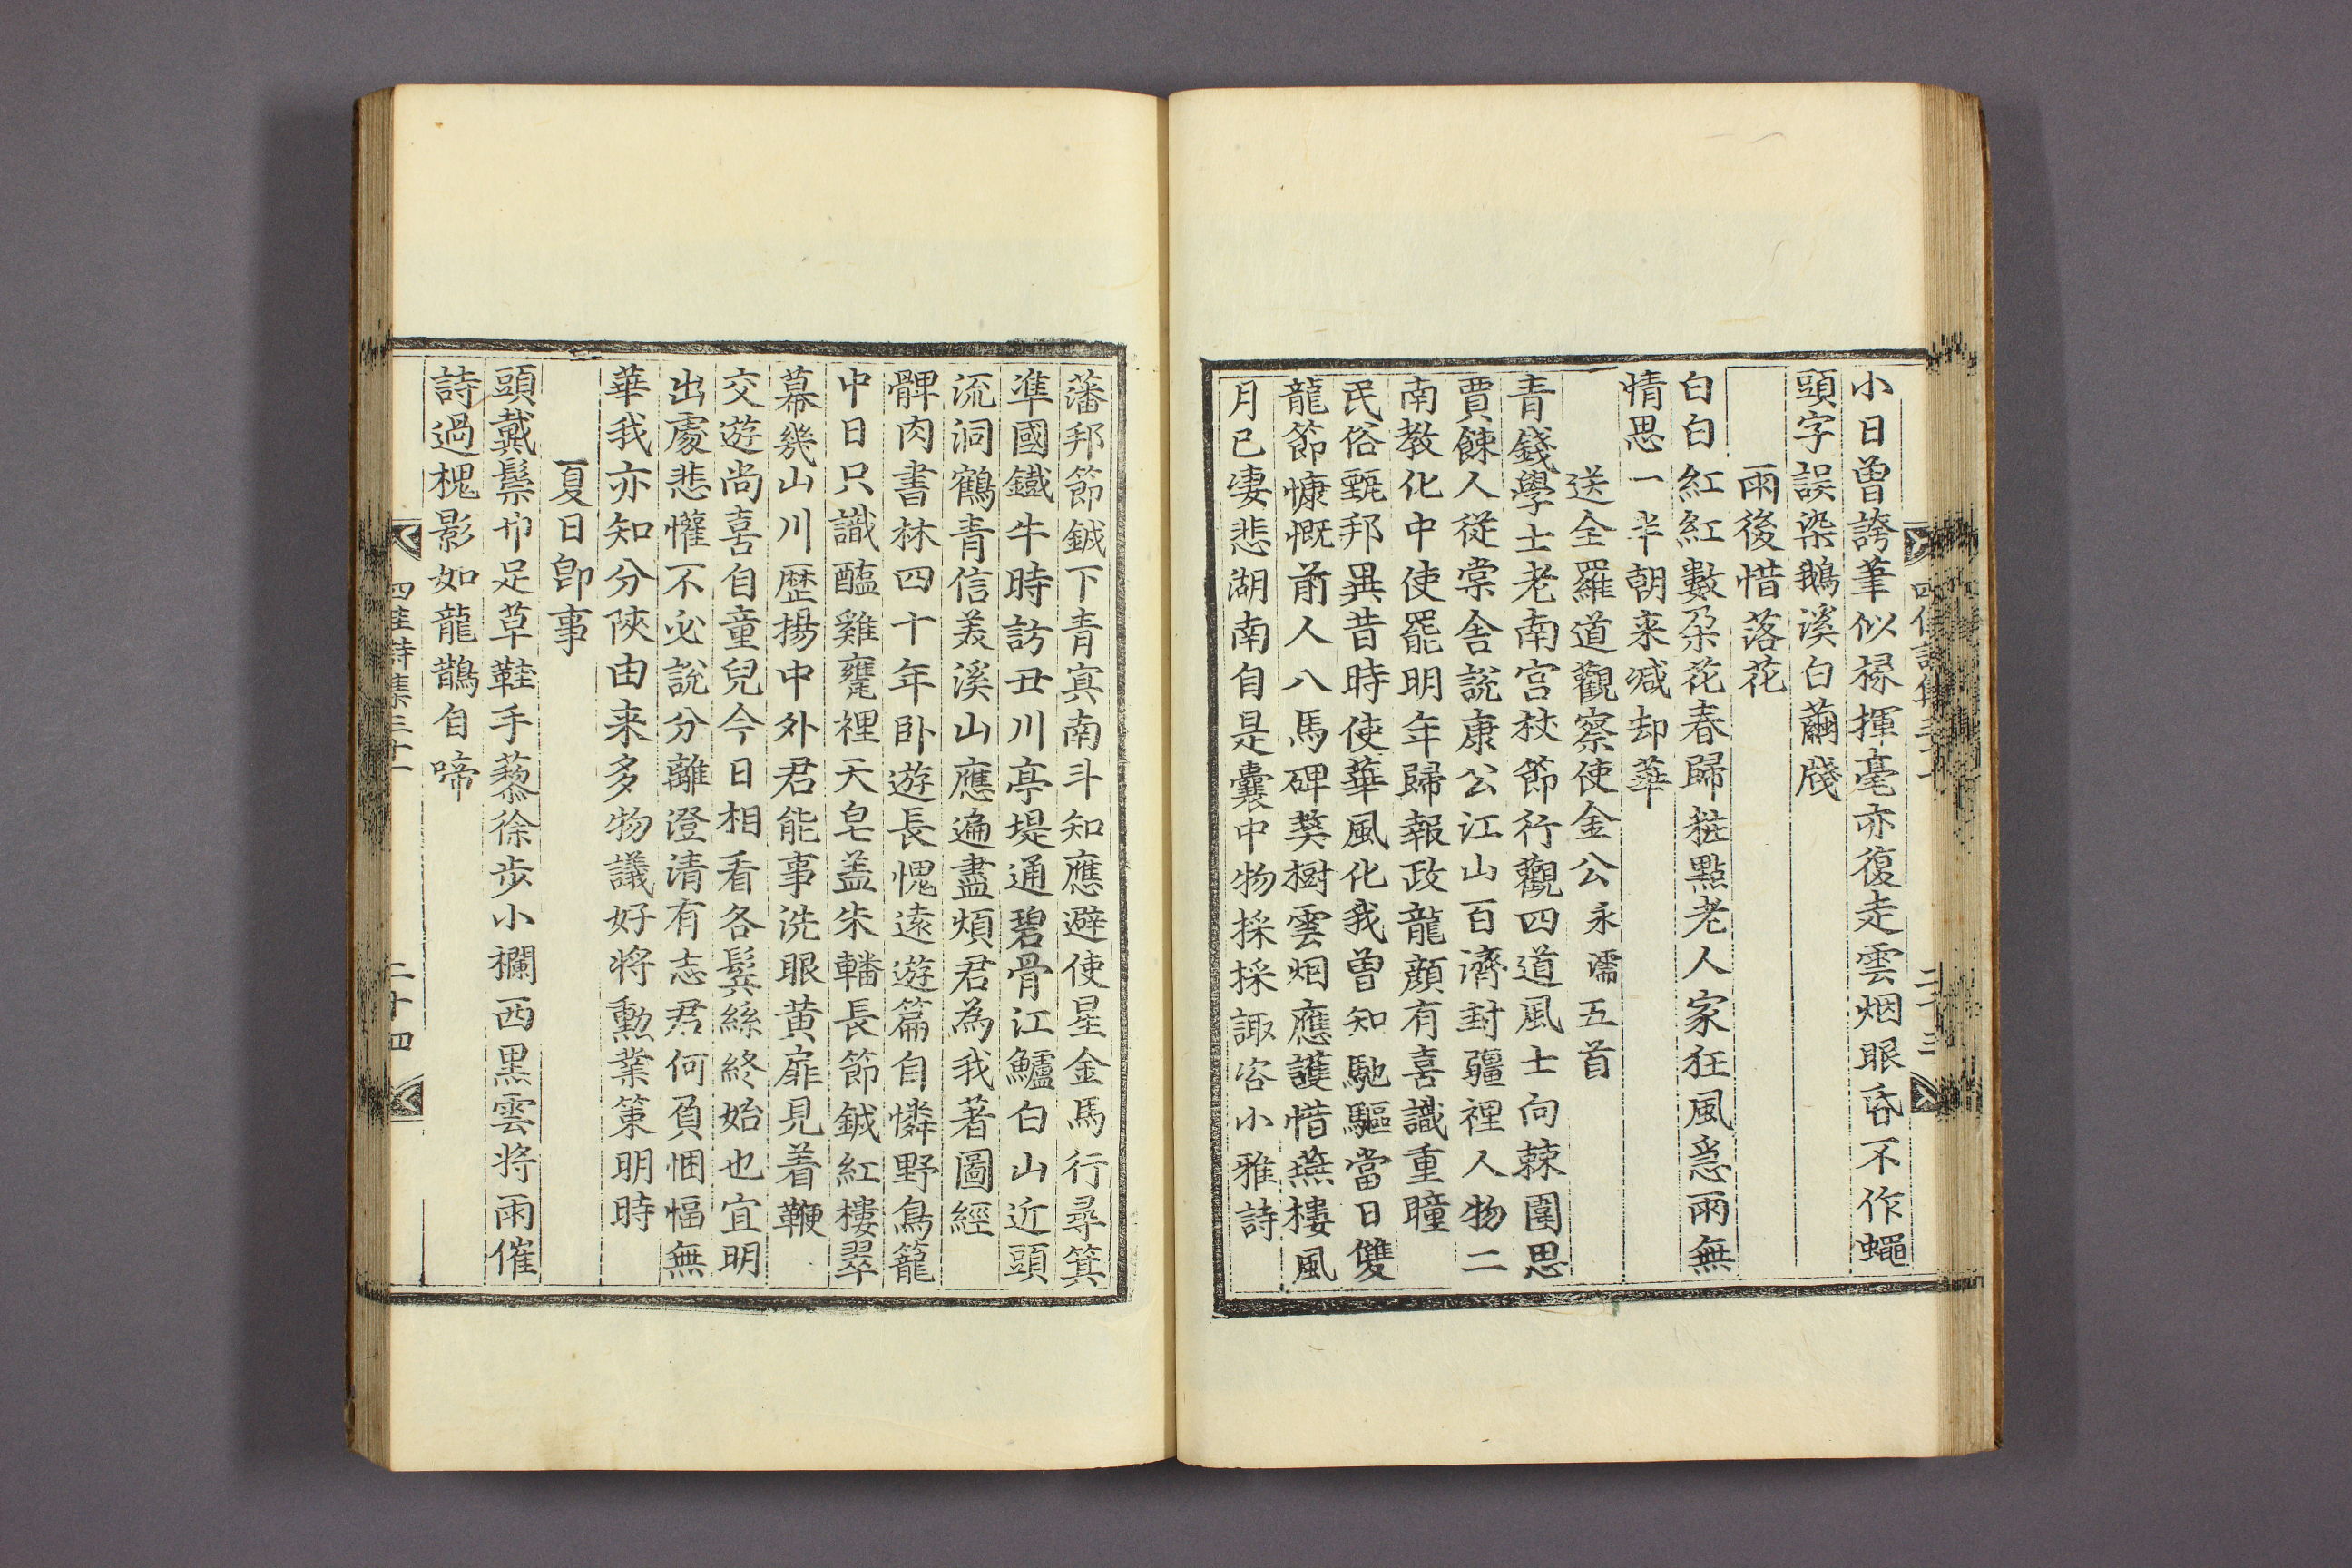 小日曾誇筆似椽揮毫亦復走雲烟眼昏不作蠅
頭字誤染鵝溪白繭牋
雨後惜落花
白白紅紅數朶花春歸粧點老人家狂風急雨無
情思一半朝来減却華
送全羅道觀察使金公永濡五首
青錢學士老南宮杖節行觀四道風士向棘圍思
賈餗人從棠舍說康公江山百濟封疆裡人物二
南教化中使罷明年歸報政龍顔有喜識重瞳
民俗甄邦異昔時使華風化我曾知馳驅當日雙
龍節慷慨前人八馬碑獒樹雲烟應護惜燕樓風
月已凄悲湖南自是囊中物採採諏咨小雅詩
四佳詩集三十一
二十三
藩邦節鉞下青寅南斗知應避使星金馬行尋箕
準國鐵牛時訪丑川亭堤通碧骨江鱸白山近頭
流洞鶴青信美溪山應遍盡煩君為我著圖經
髀肉書林四十年卧遊長愧遠遊篇自憐野鳥籠
中日只識醯雞甕裡天皂盖朱轓長節鉞紅樓翠
幕幾山川歷揚中外君能事洗眼黄扉見着鞭
交遊尚喜自童兒今日相看各鬂絲終始也宜明
出處悲懽不必說分離澄清有志君何負悃愊無
華我亦知分陝由来多物議好將勳業策明時
夏日卽事
頭戴鬃巾足草鞋手藜徐步小欄西黑雲將雨催
詩過槐影如龍鵲自啼
四佳詩集三十一
二十四